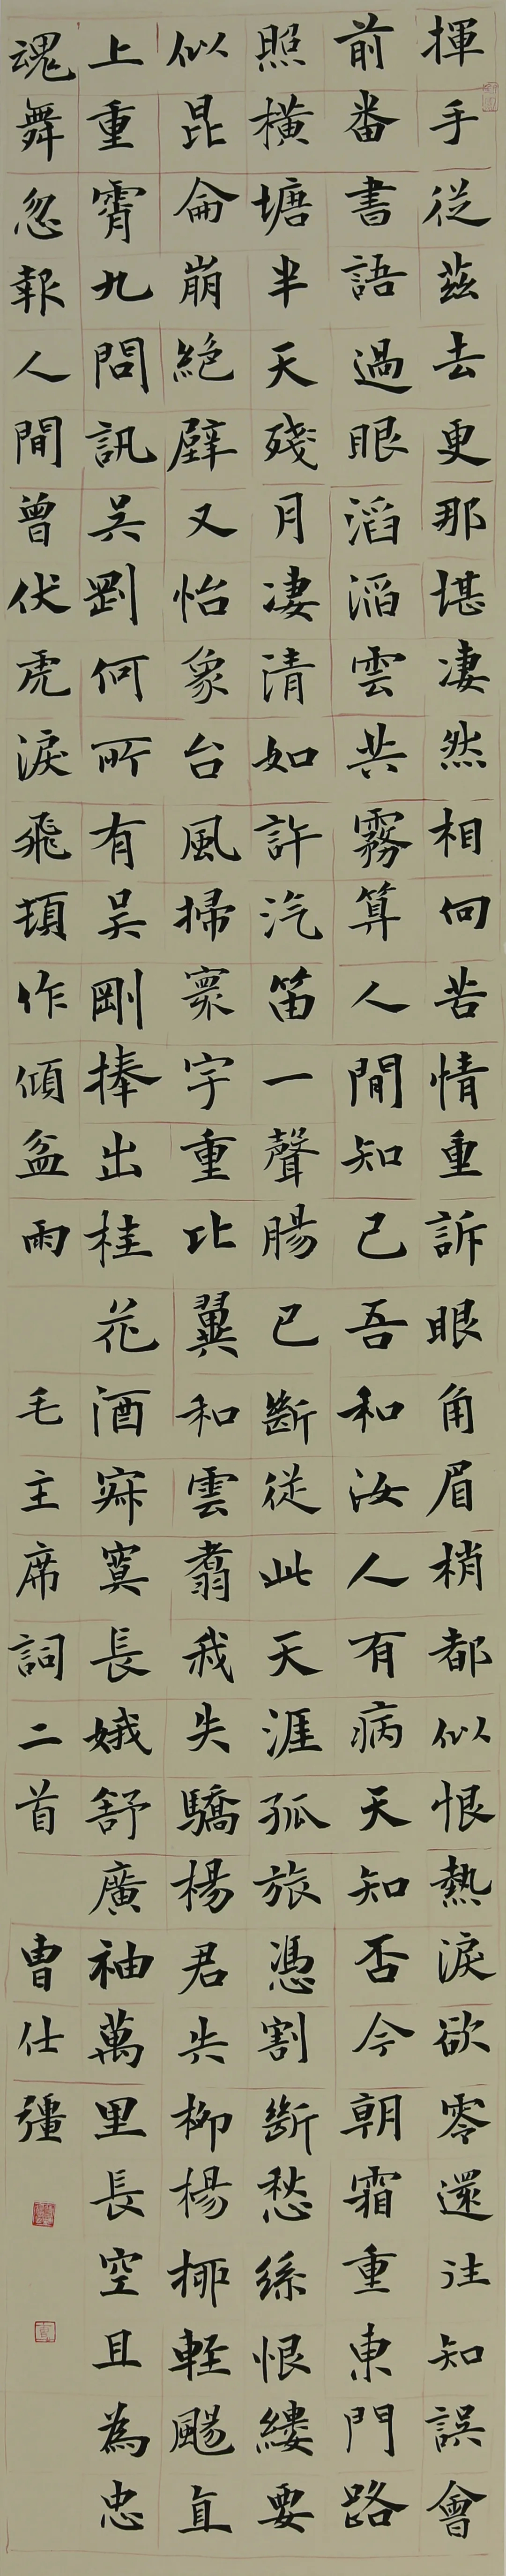 揮手從茲去更那堪凄然相向苦情重訴眼角眉梢都似恨熱淚欲零還注知誤會
前番書語過眼滔滔雲共霧算人間知己吾和汝人有病天知否今朝霜重東門路
照橫塘半天殘月凄清如許汽笛一聲腸已斷從此天涯孤旅憑割斷愁絲恨縷要
似昆侖崩絕壁又恰象台風掃寰宇重比翼和雲翥我失驕楊君失柳楊柳輕颺直
上重霄九問訊吳剛何所有吳剛捧出桂花酒寂寞長娥舒廣袖萬里長空且為忠
魂舞忽報人間曾伏虎淚飛頓作傾盆雨 毛主席詞二首 曹仕彊